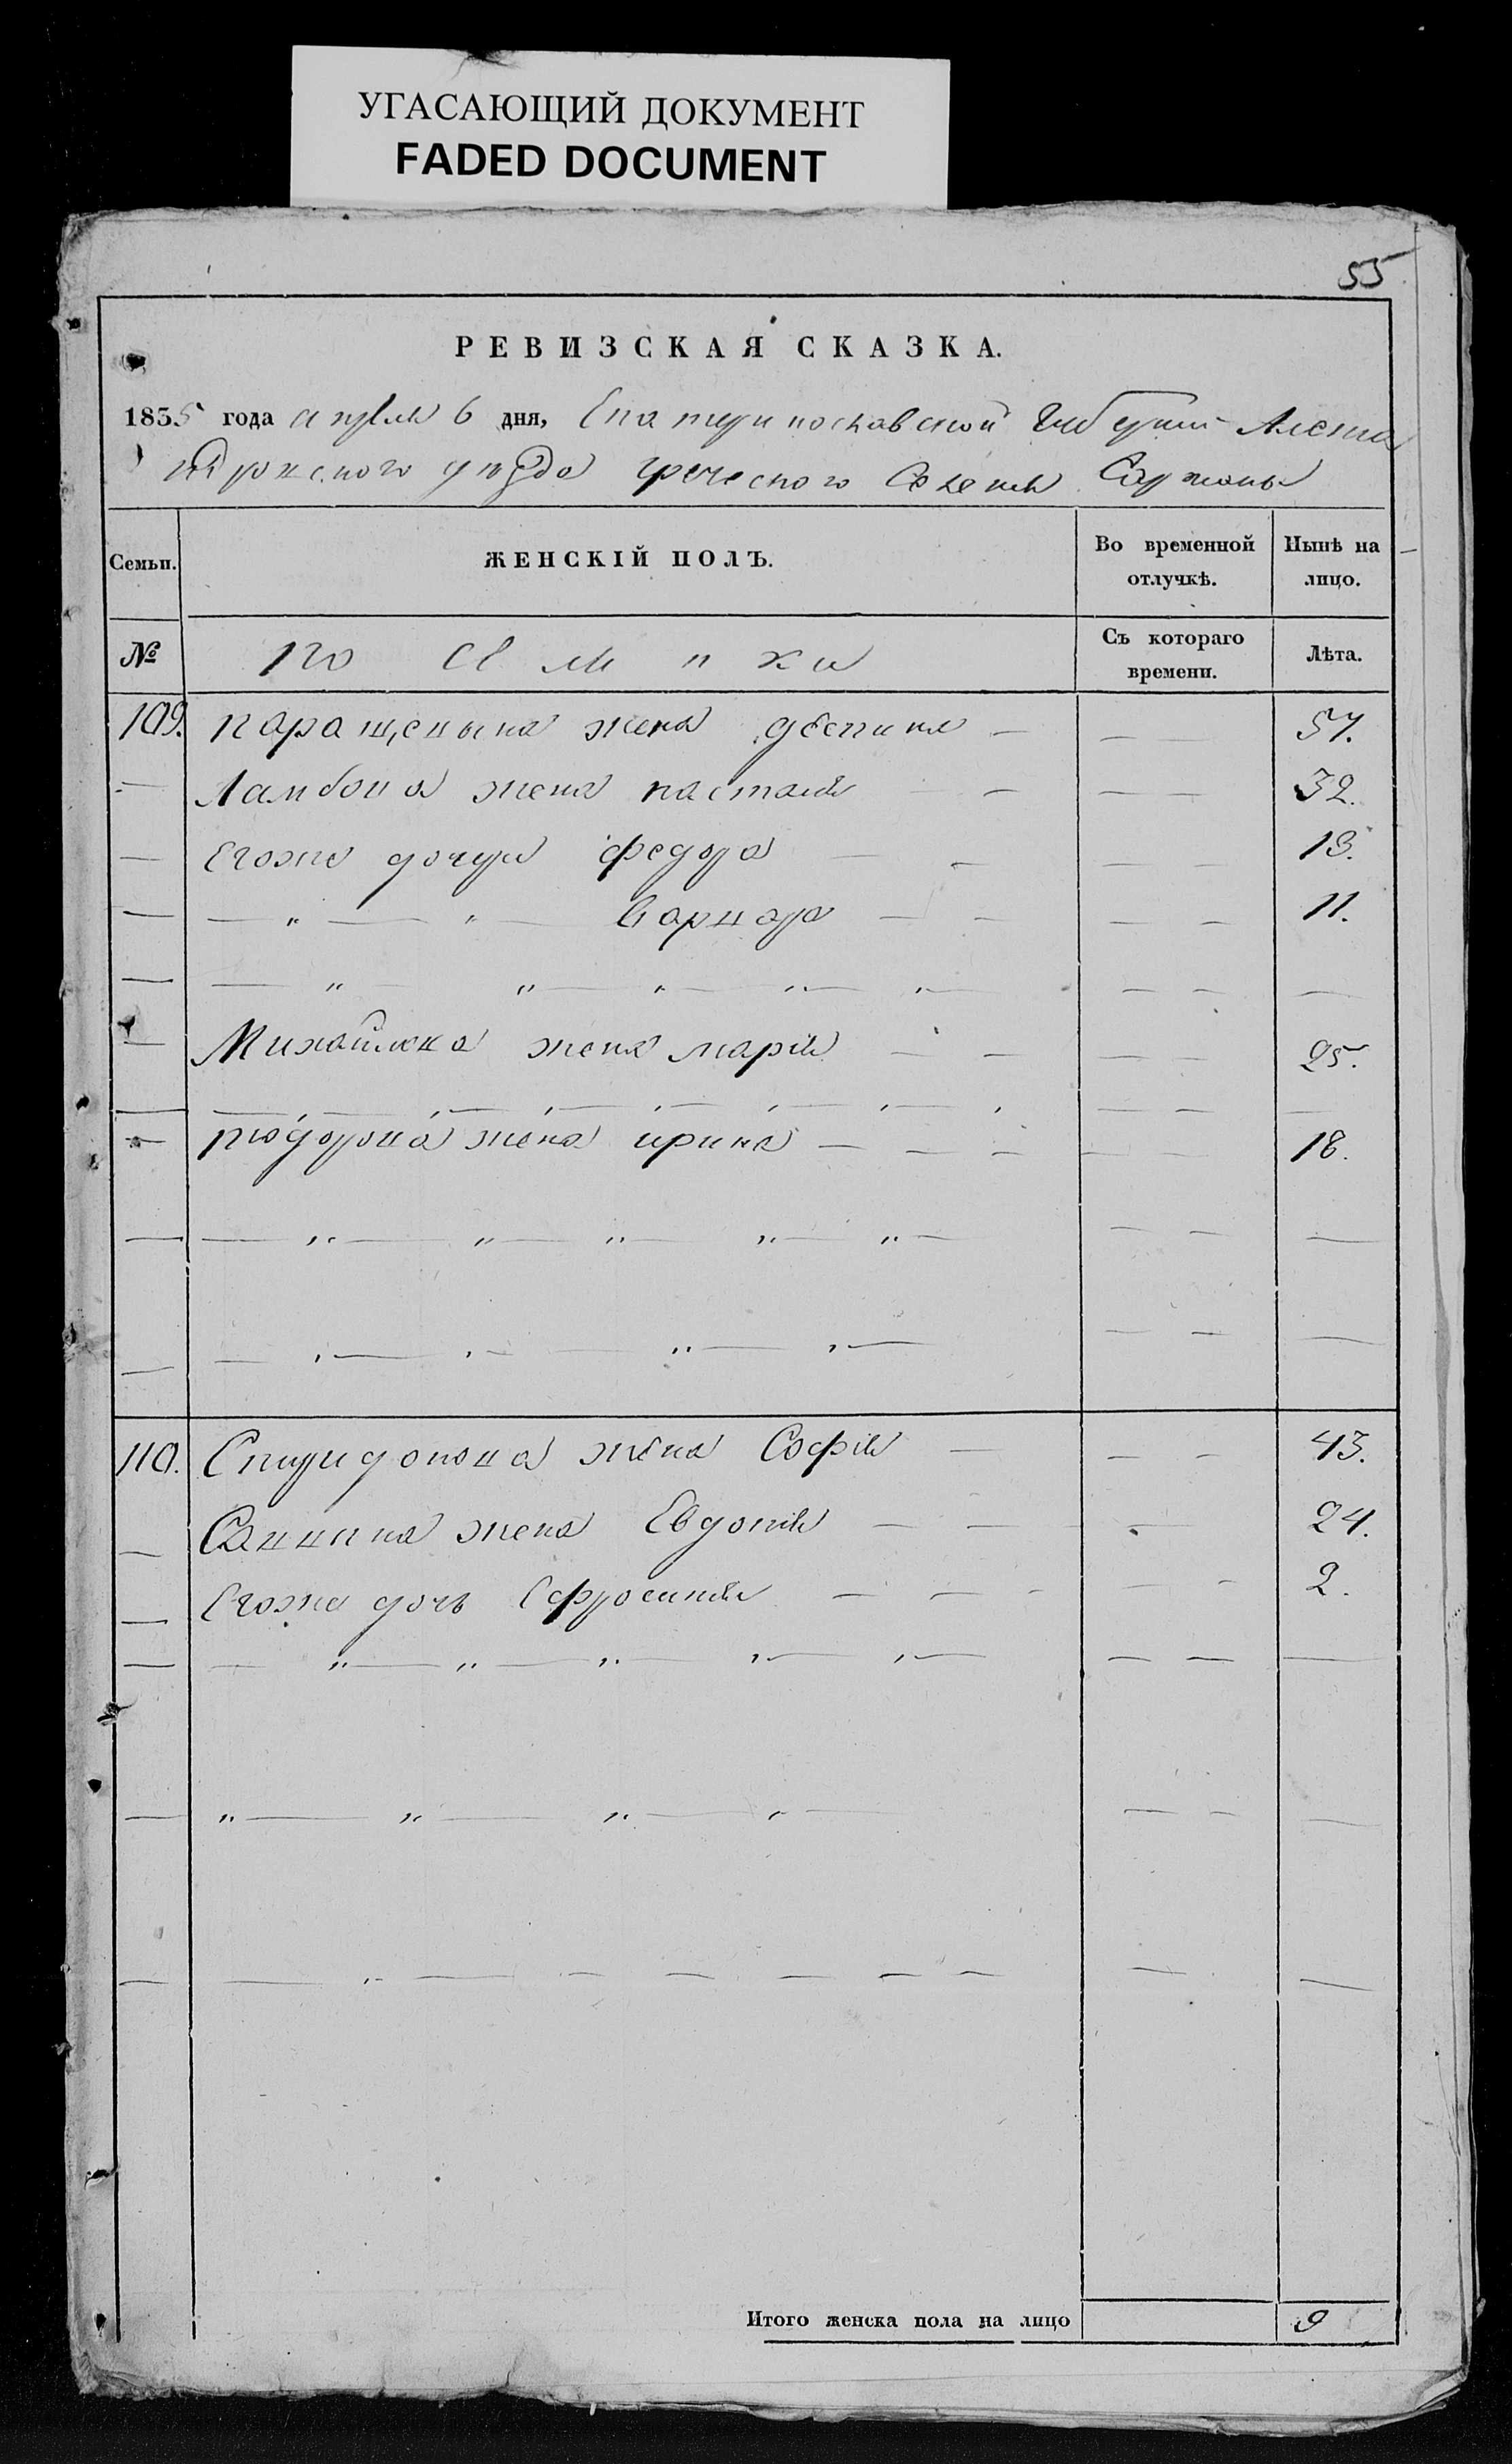 УГАСАЮЩИЙ ДОКУМЕНТ
FADED DOCUMENT
55
РЕВИЗСКАЯ СКАЗКА.
1835 года апреля 6 дня, Екатеринославской Губернии Алекса
ндровского уезда греческого Селения
Семьи. ЖЕНСКІЙ ПОЛЪ. Во временной отлучкѣ. Нынѣ на лицо.
№ Съ котораго времени. Лѣта.
109. жена деспина — — — 57.
— Ламбова жена настасия — — — — 32.
— Егоже дочери федора — — — — 13.
— — „ — „ — Варвара — — — — 11.
— — „ — „ — „ — „ — „ — — — —
— жена мария — — — — 25.
— — , — , — , — , — , — , — , — — —
— жена ирина — — — — — 18.
— — „ — „ — „ — „ — „ — — — —
— — , — , — — „ — , — — — —
110. жена София — — — 43.
— Саввина жена Евдокия — — — 24.
— Егоже дочь Ефросиния — — — — — 2.
— — „ — „ — „ — , — , — — — —
— „ — „ — „ — „ — — — —
— — „ — — — — — — — —
Итого женска пола на лицо 9